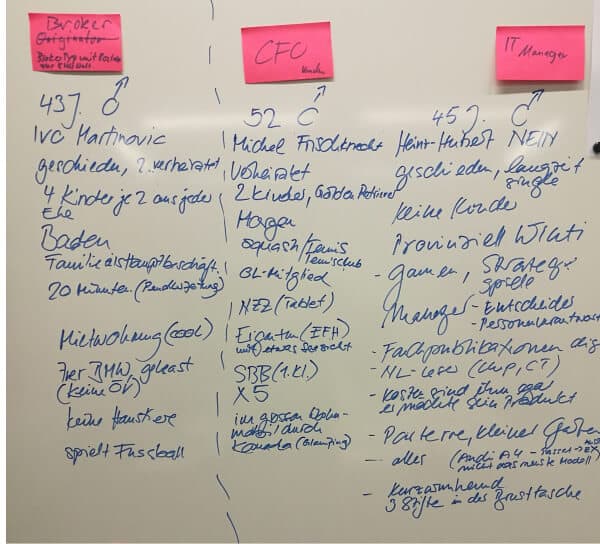 Broker
Originator
CFO
Kunde
IT Manager
43 J. ♂
Ivo Martinovic
geschieden, 2. verheiratet
4 Kinder je 2 aus jeder
Ehe
Baden
Familie ist Hauptbeschäft.
20 Minuten (Pendlerzeitung)
Mietwohnung (cool)
7ner BMW, geleast
(keine ÖV)
keine Haustiere
spielt Fussball
52 ♂
Michel Frischknecht
Verheiratet
2 Kinder, Golden Retriever
Horgen
Squash/Tennis
Tennisclub
GL-Mitglied
NZZ (Tablet)
Eigentum (EFH)
mit etwas Seesicht
SBB (1. Kl.)
X5
im grossen Wohn-
mobil durch
Kanada (Glamping)
45 J. ♂
Heinz-Hubert NEIN
geschieden, langzeit
single
keine Kinder
Provinziell
- gamen, Strategie-
spiele
Manager - Entscheider
- Personalverantwort
- Fachpublikationen dig
- NL-Leser (Chip, CT)
- Kosten sind ihm egal
er möchte sein Produkt
- Parterre, kleiner Garten
- alles (Audi A4 - Passat →
nicht das neuste Modell)
- Kurzarmhemd
3 Stifte in der Brusttasche